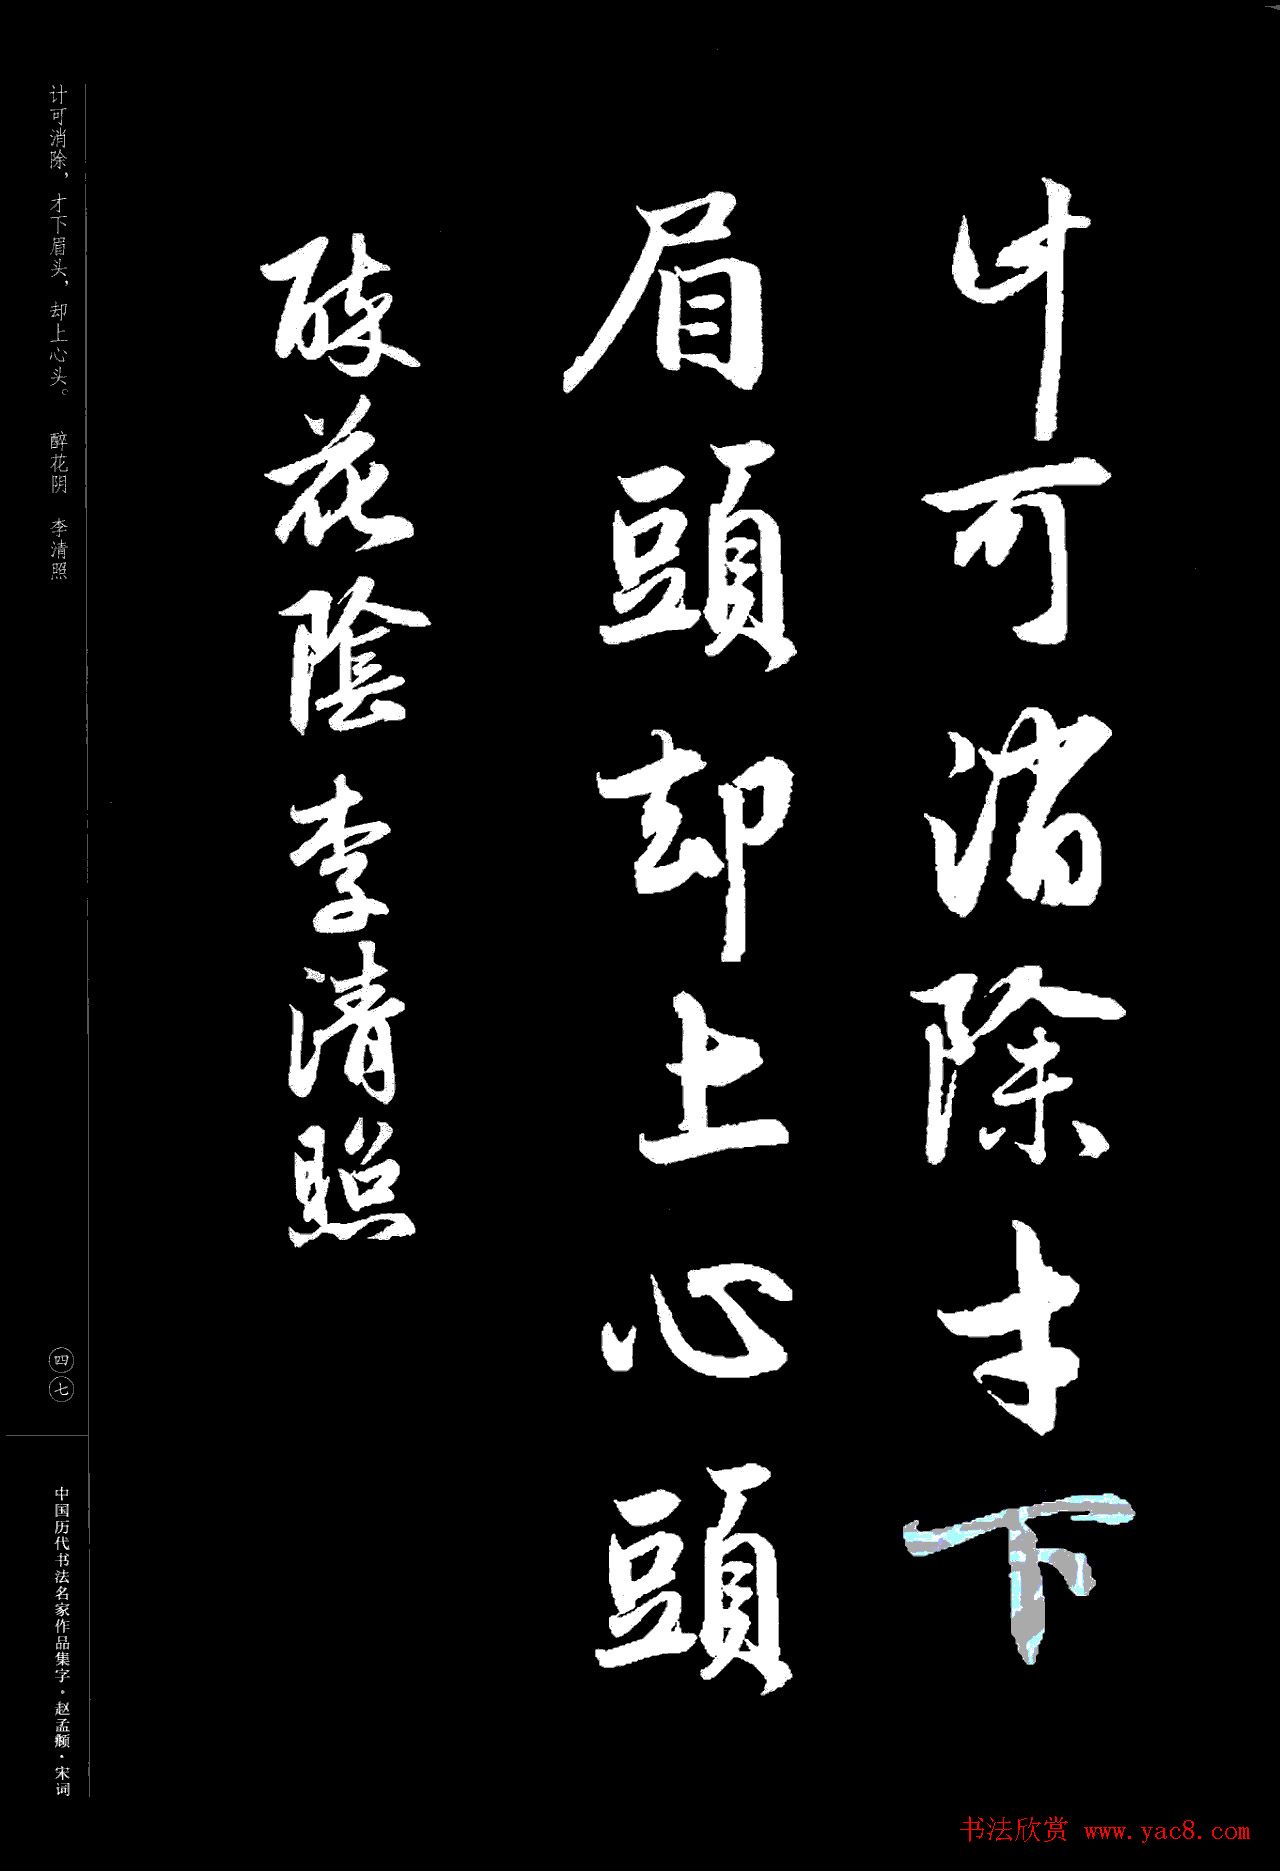 计可消除才下
眉頭却上心頭
醉花陰李清照
计可消除，才下眉头，却上心头。 醉花阴 李清照
四七
中国历代书法名家作品集字·赵孟頫·宋词
书法欣赏 www.yac8.com